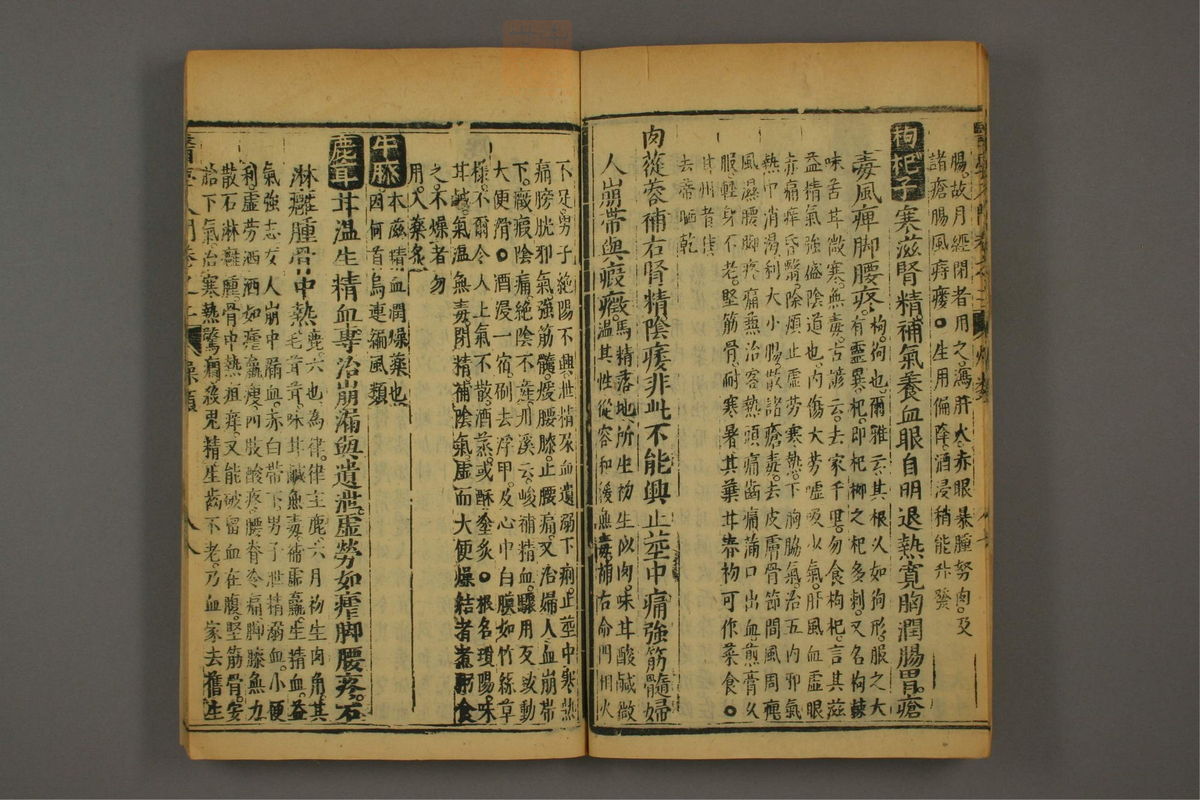 腸。故月經閉者用之。瀉肝火。赤眼暴腫努肉。及
諸瘡腸風痔瘻。○生用偏降。酒浸稍能升發
枸杞子 寒滋腎精補氣養血眼自明退熱寬胸潤腸胃。瘡
毒風痺脚腰疼。枸。狗也。爾雅云。其根乆如狗形。服之大
有靈異。杞。即杞柳之杞多刺。又名枸棘
味苦甘微寒。無毒。古諺云。去家千里。勿食枸杞。言其滋
益精氣強盛陰道也。內傷大劳噓吸少氣。肝風血虛眼
赤痛痒昏翳。除煩止虛劳寒熱。下胸脇氣。治五內邪氣
熱中消渴。利大小腸。散諸瘡毒。去皮膚骨節間風。周痺
風濕腰脚疼痛。兼治客熱頭痛齒痛滿口出血。煎膏乆
服。輕身不老。堅筋骨。耐寒暑。其葉甘。春初可作菜食。○
甘州者佳
去蒂晒乾
肉蓯蓉補右腎精陰痿非此不能興止莖中痛強筋髓婦
人崩帶與癥瘕。馬精落地。所生初生似肉味甘酸鹹微
溫。其性從容和緩無毒。補右命門相火
不足。男子絶陽不興。泄精尿血遺弱下痢。止莖中寒熱
痛膀胱邪氣強筋髓。煖腰膝。止腰痛。又治婦人血崩帶
下。癥瘕陰痛絶陰不產。丹溪云。峻補精血。驟用反或動
大便滑。○酒浸一宿。刷去浮甲。及心中白膜如竹絲草
様。不爾令人上氣不散。酒蒸。或酥塗炙。○根名瑣陽。味
甘鹹。氣溫無毒。閉精。補陰氣虛而大便燥結者煮粥食
之。不燥者勿
用。入藥炙
牛膝 本滋精血潤燥藥也
因何首烏連編風類
鹿茸 甘溫生精血專治崩漏與遺泄虛勞如瘧脚腰疼。石
淋癰腫骨中熱 鹿六也為律。律主鹿。六月初生肉角。其
毛茸茸。味甘鹹無毒補虛羸。生精血。益
氣強志。女人崩中漏血。赤白帶下。男子泄精溺血。小便
利。虛劳洒洒如瘧羸瘦。四肢酸疼。腰脊冷痛脚膝無力
散石淋癰腫。骨中熱疽痒。又能破留血在腹。堅筋骨。安
胎下氣。治寒熱驚癇殺鬼精生齒不老。乃血家去舊生